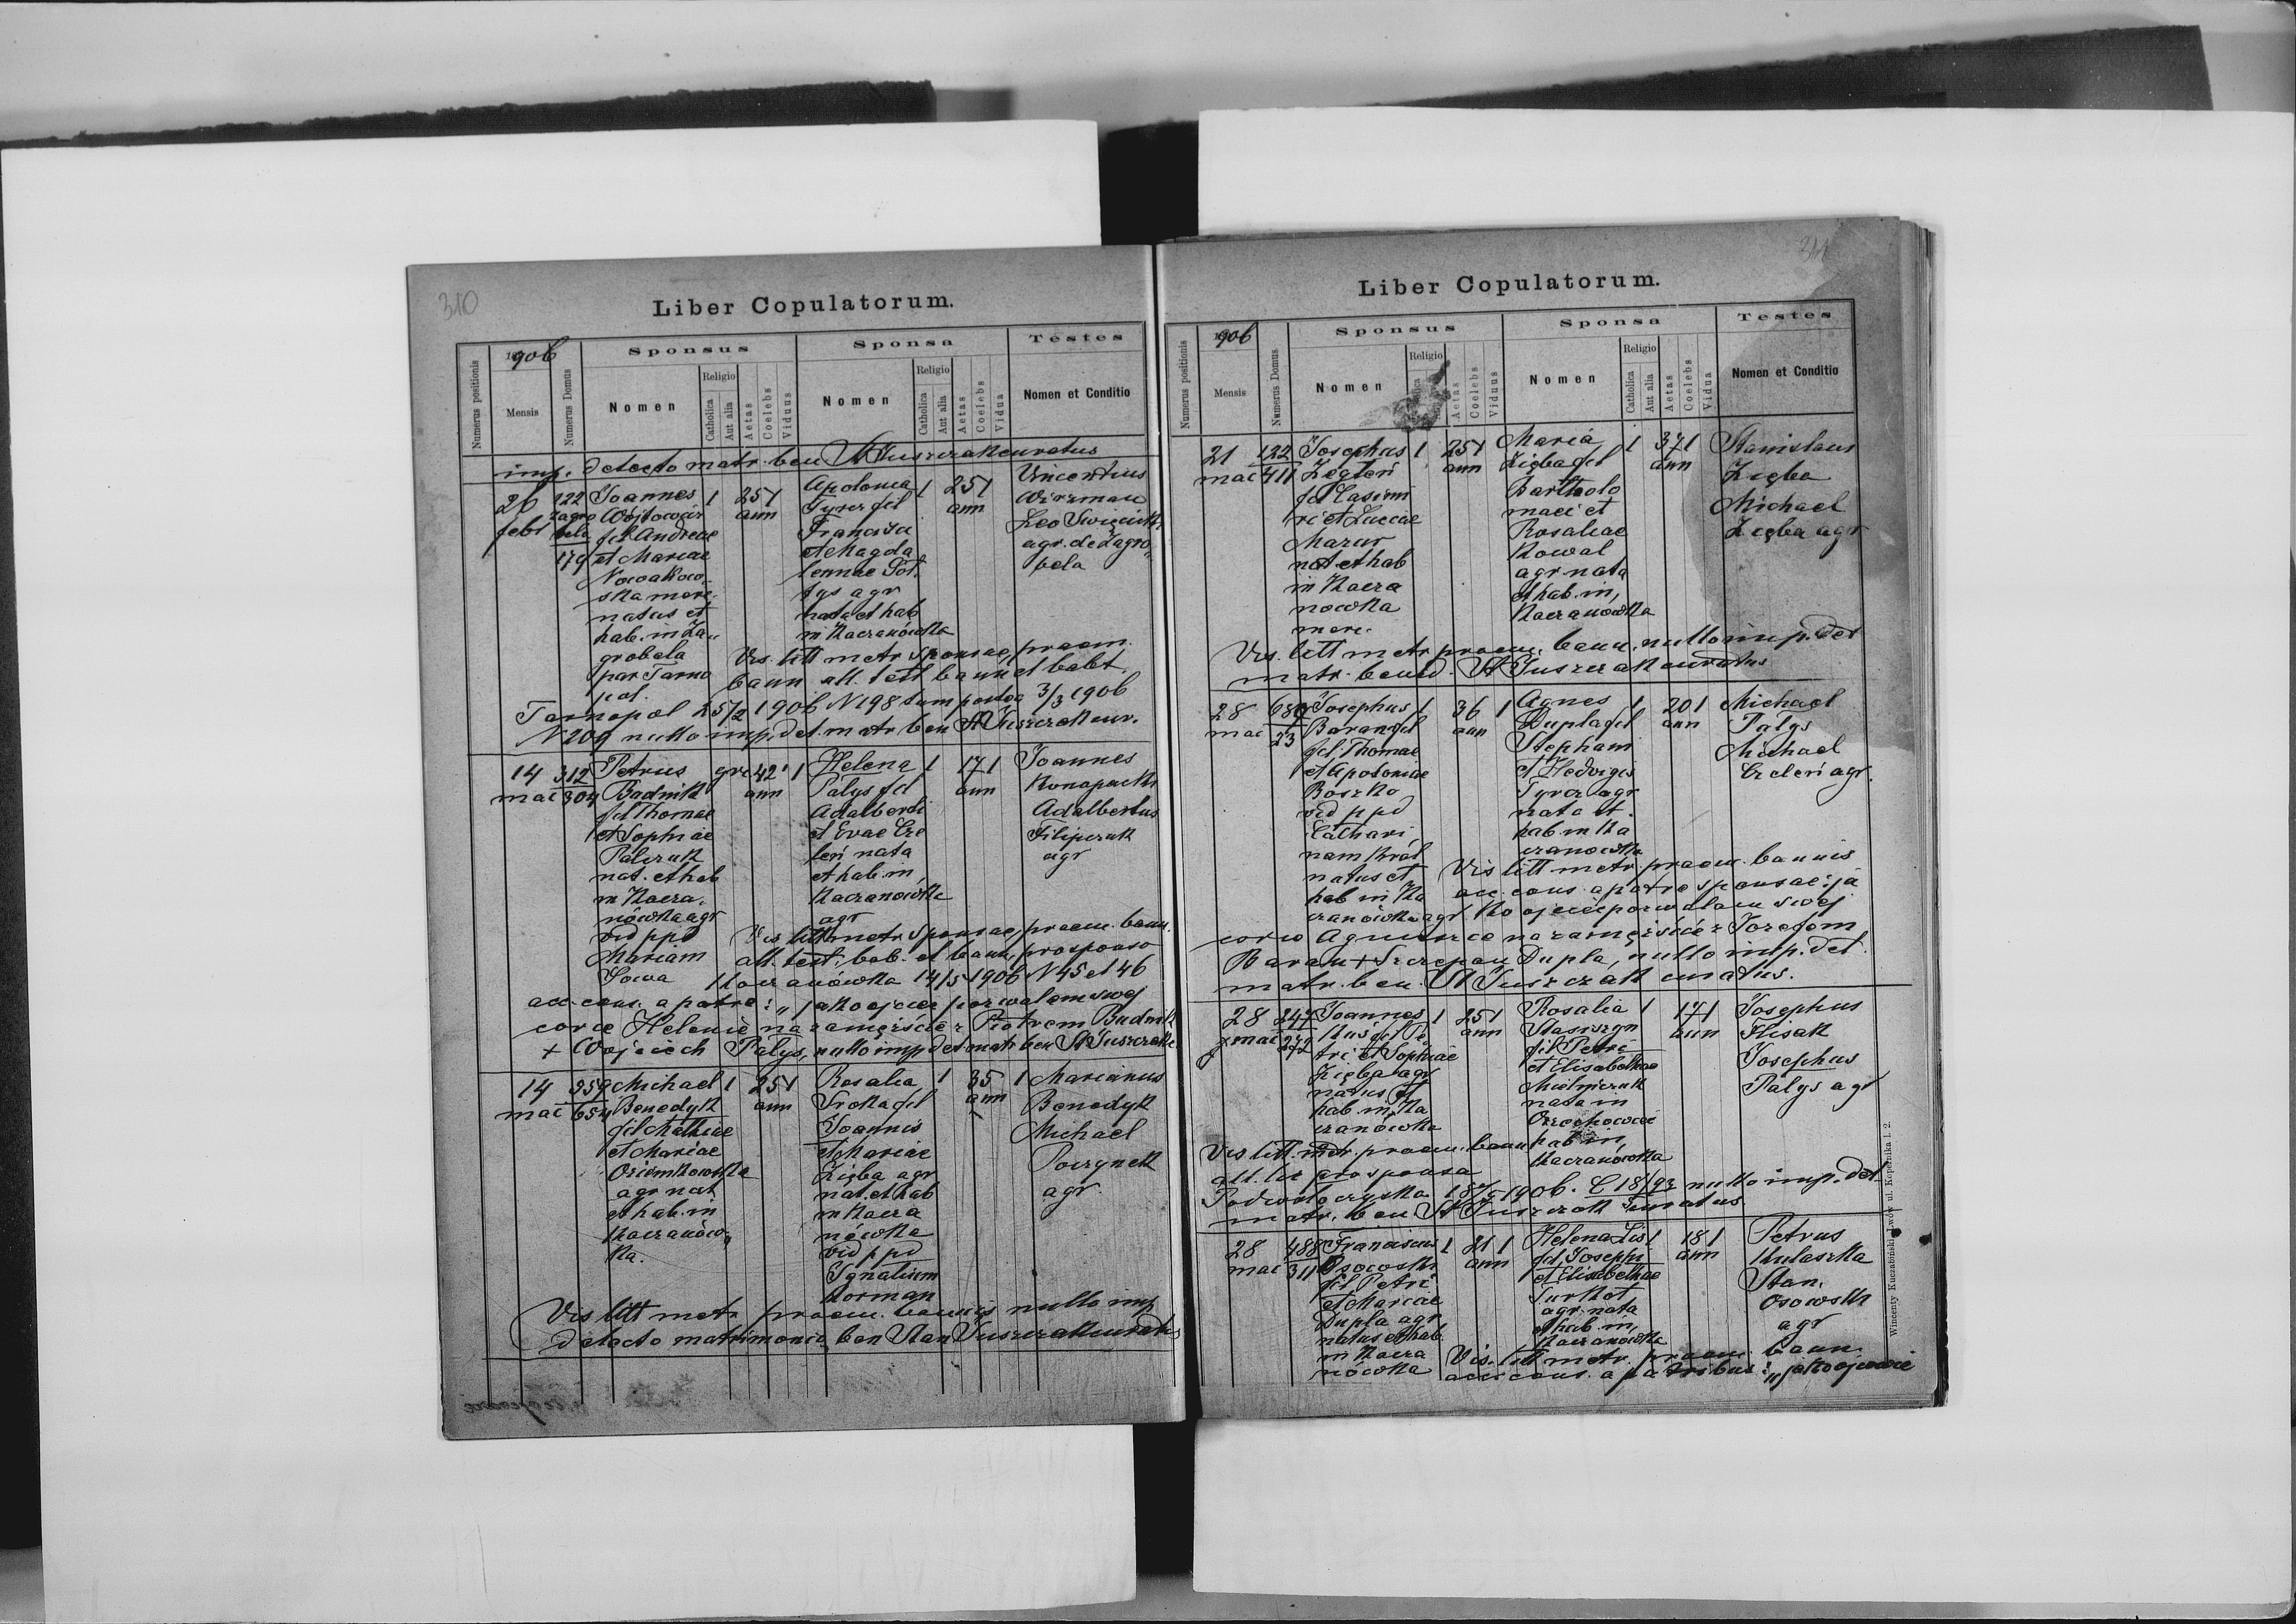 310
Liber Copulatorum.
1906
Numerus positionis
Mensis
Numerus Domus
Sponsus
Nomen
Religio
Catholica
Aut alia
Aetas
Coelebs
Viduus
Sponsa
Nomen
Religio
Catholica
Aut alia
Aetas
Coelebs
Vidua
Testes
Nomen et Conditio
imp. detecto matr. ben St Juszczak curatus
26 122 Joannes 1 25 1 Apolonia 1 25 1 Vincentius
febr Zagro Wójtowicz ann Tyrcz fil ann
bela fil Andreae Francisci Leo
179 et Mariae et Magda agr. de Zagro
Nowakow lennae bela
ska merc. tys agr
natus et nata et hab
hab. in Za in Kaczanówka
grobela Vis. litt metr sponsae, praem.
par Tarno bann all. test bann et babt.
pol.
Tarnopol 25/2 1906 N 198 tum postea 3/3 1906
N 209 nullo imp. det. matr ben St Juszczak cur.
14 312 Petrus gr 42 1 Helena 1 17 1 Joannes
mai 304 Budnik ann Palys fil ann Konopacki
fil Thomae Adalberti Adalbertus
et Sophiae et Evae Cze Filipczuk
Palczuk leń nata agr
nat. et hab et hab. in
in Kacza Kaczanówka
nówka agr agr
vid ppd Vis litt metr sponsae, praem. bann.
Mariam all. test. bab. et bann. pro sponso
Sowa Kaczanówka 14/5 1906 N 45 et 46
acc. cons. a patre: "jako ojciec pozwalam swej
córce Helenie na zamęście z Piotrem Budnik
+ Wojciech Palys, nullo imp det matr ben St Juszczak
14 359 Michael 1 25 1 Rosalia 1 35 1 Marianus
mai 654 Benedyk ann Sroka fil ann Benedyk
fil Mathiae Joannis Michael
et Mariae et Mariae
Oziemkowska Zięba agr agr.
agr nat nat. et hab
et hab. in in Kacza
Kaczanów nówka
ka. vid ppd
Ignatium
Korman
Vis litt metr praem. bannis nullo imp
detecto matrimonio ben Stan Juszczak curatus
311
Liber Copulatorum.
1906
Numerus positionis
Mensis
Numerus Domus
Sponsus
Nomen
Religio
Aetas
Coelebs
Viduus
Sponsa
Nomen
Religio
Catholica
Aut alia
Aetas
Coelebs
Vidua
Testes
Nomen et Conditio
21 122 Josephus 1 25 1 Maria 1 37 1 Stanislaus
mai 411 ann Zięba fil ann Zięba
fil Casimi Bartholo Michael
ri et Luciae maei et Zięba agr
Mazur Rosaliae
nat et hab Kowal
in Kacza agr nata
nowka et hab. in
merc. Kaczanówka
Vis. litt metr praem. bann. nullo imp. det
matr. bened. St Juszczak curatus
28 680 Josephus 1 36 1 Agnes 1 20 1 Michael
mai 23 Baran fil ann Dupla fil ann Palys
fil Thomae Stephani Michael
et Apoloniae et Hedvigis Czeleń agr.
Boszko Tyrcz agr
vid ppd nata et
Cathari hab in Ka
nam Król czanowka
natus et Vis litt metr praem. bannis
hab in Ka acc. cons. a patre sponsae: ja
czanówka agr. ko ojciec pozwalam swej
córce Agnieszce na zamęście z Józefem
Baran + Szczepan Dupla, nullo imp. det.
matr. ben. St Juszczak curatus.
28 247 Joannes 1 25 1 Rosalia 1 17 1 Josephus
mai 272 Kuś fil Pe ann Stasiszyn ann Flisak
tri et Sophiae fil Petri Josephus
Zięba agr et Elisabethae Palys agr
natus et Mielniczuk
hab. in Ka nata in
czanówka Orzechowiec
Vis litt. metr. praem. bann hab in,
all. lit pro sponsa Kaczanówka
Podwołoczyska 18/5 1906. L 18/93 nullo imp. det
matr. ben St Juszczak curatus
28 488 Franciscus 1 21 1 Helena Lis 1 18 1 Petrus
mai 311 Osowski ann fil Josephi ann Kulaszka
fil Petri et Elisabethae Stan.
et Mariae Turkot Osowski
Dupla agr agr. nata agr
natus et hab et hab. in,
in Kacza Kaczanówka
nówka Vis. litt metr. praem. bann.
acc. cons. a patribus: "jako ojcowie
Wincenty Kuczabiński, Lwów ul. Kopernika l. 2.